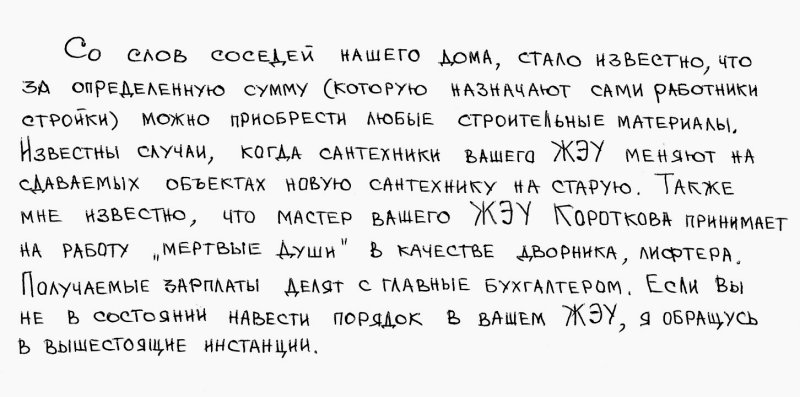 Со слов соседей нашего дома, стало известно, что
за определенную сумму (которую назначают сами работники
стройки) можно приобрести любые строительные материалы.
Известны случаи, когда сантехники вашего ЖЭУ меняют на
сдаваемых объектах новую сантехнику на старую. Также
мне известно, что мастер вашего ЖЭУ Короткова принимает
на работу „мертвые души" в качестве дворника, лифтера.
Получаемые зарплаты делят с главные бухгалтером. Если Вы
не в состоянии навести порядок в вашем ЖЭУ, я обращусь
в вышестоящие инстанции.